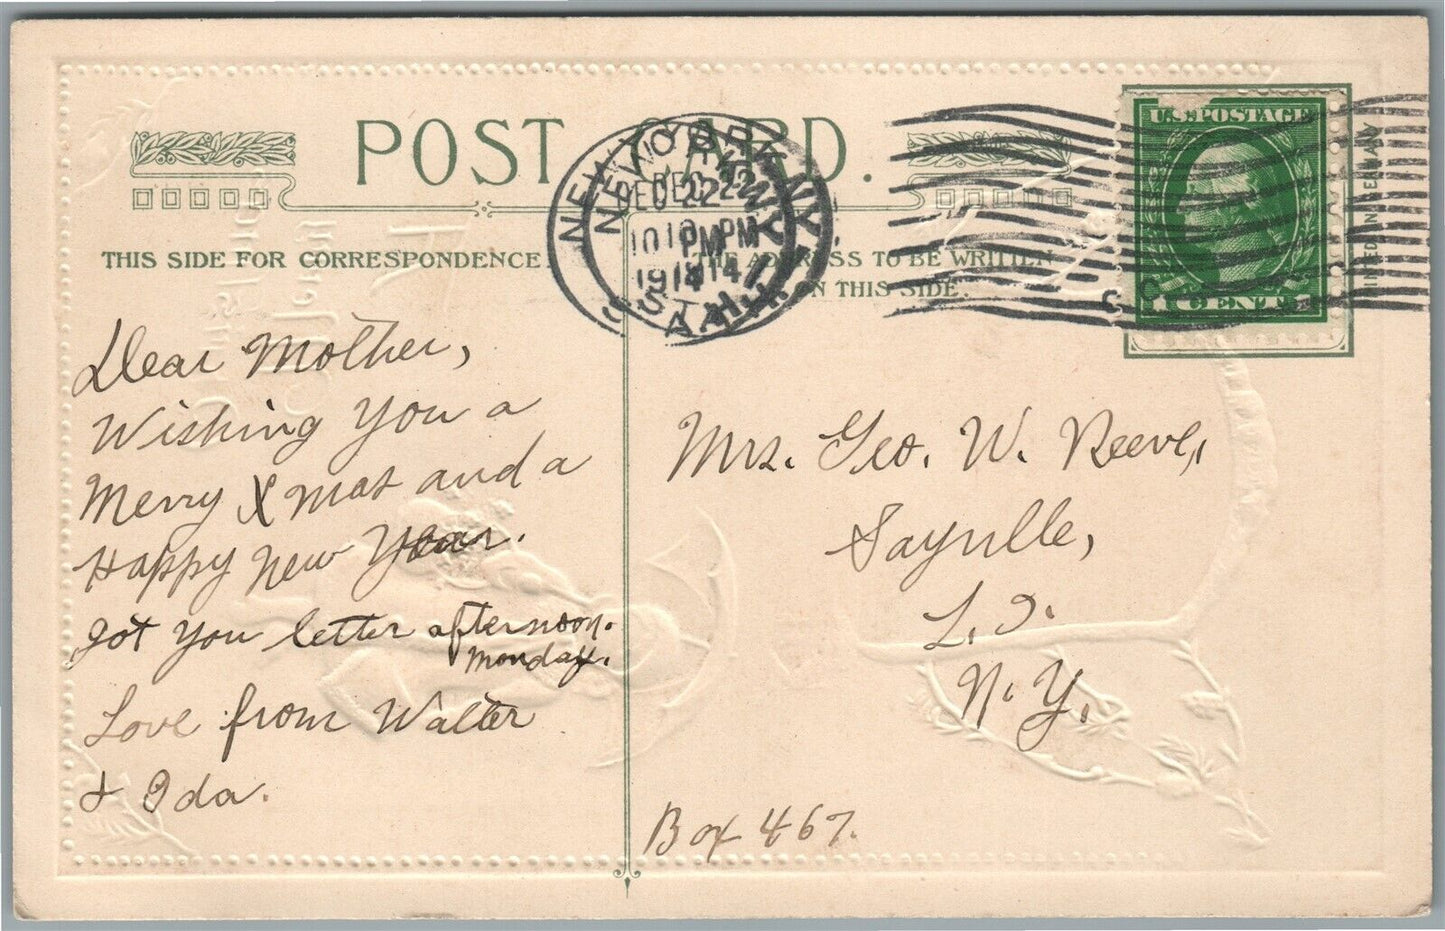 POST CARD.
THIS SIDE FOR CORRESPONDENCE.
THE ADDRESS TO BE WRITTEN
ON THIS SIDE.
NEW YORK, N.Y.
DEC 22
10 PM
1914
STA. H.
U.S. POSTAGE
1 CENT 1
PRINTED IN GERMANY
Dear Mother,
Wishing you a
Merry Xmas and a
Happy New Year.
Got you letter afternoon.
Monday.
Love from Walter
& Ida.
Mrs. Geo. W. Reeve,
Sayville,
L. I.
N. Y.
Box 467.